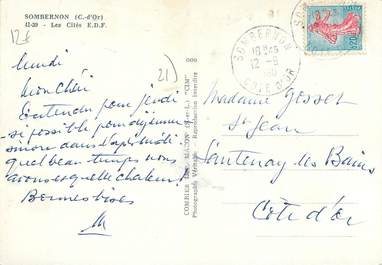 SOMBERNON (C.-d'Or)
41-20 - Les Cités E.D.F.
12€
21)
Lundi
Mon Chéri
Entendu pour jeudi
si possible pour déjeuner
sinon dans l'après-midi
quel beau temps nous
avons et quelle chaleur!
Bonnes bises
M
COMBIER IMP. MACON (S.-et-L.) "CIM"
Photographie Véritable - Reproduction Interdite
SOMBERNON
12-9
COTE D'OR
Madame Gosset
St Jean
Santenay les Bains
Côte d'Or